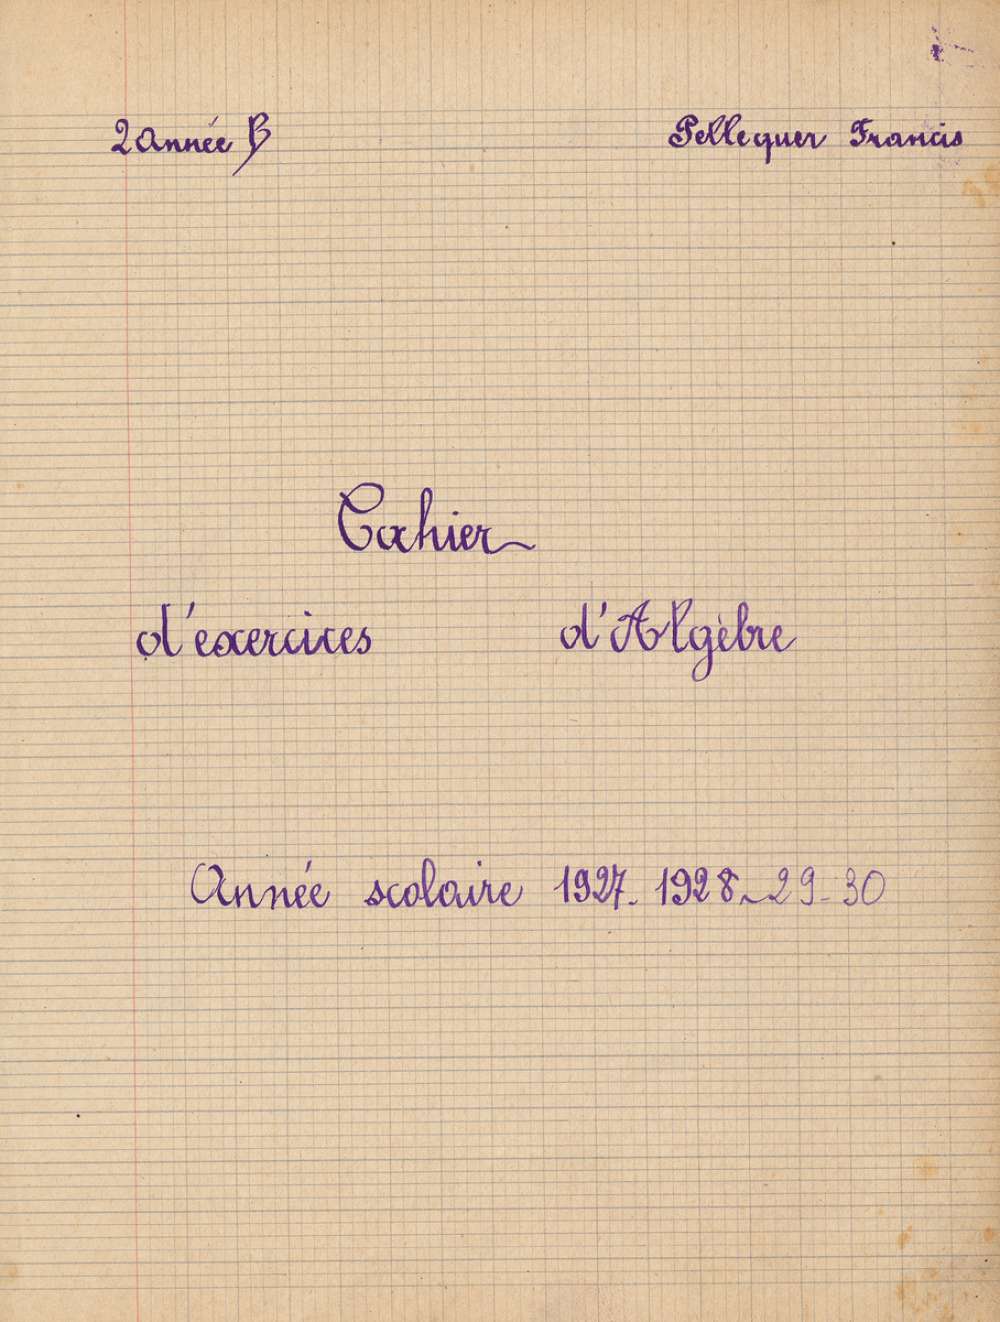 2 année B Pellequer Francis
Cahier
d'exercices d'Algèbre
Année scolaire 1927-1928-29-30